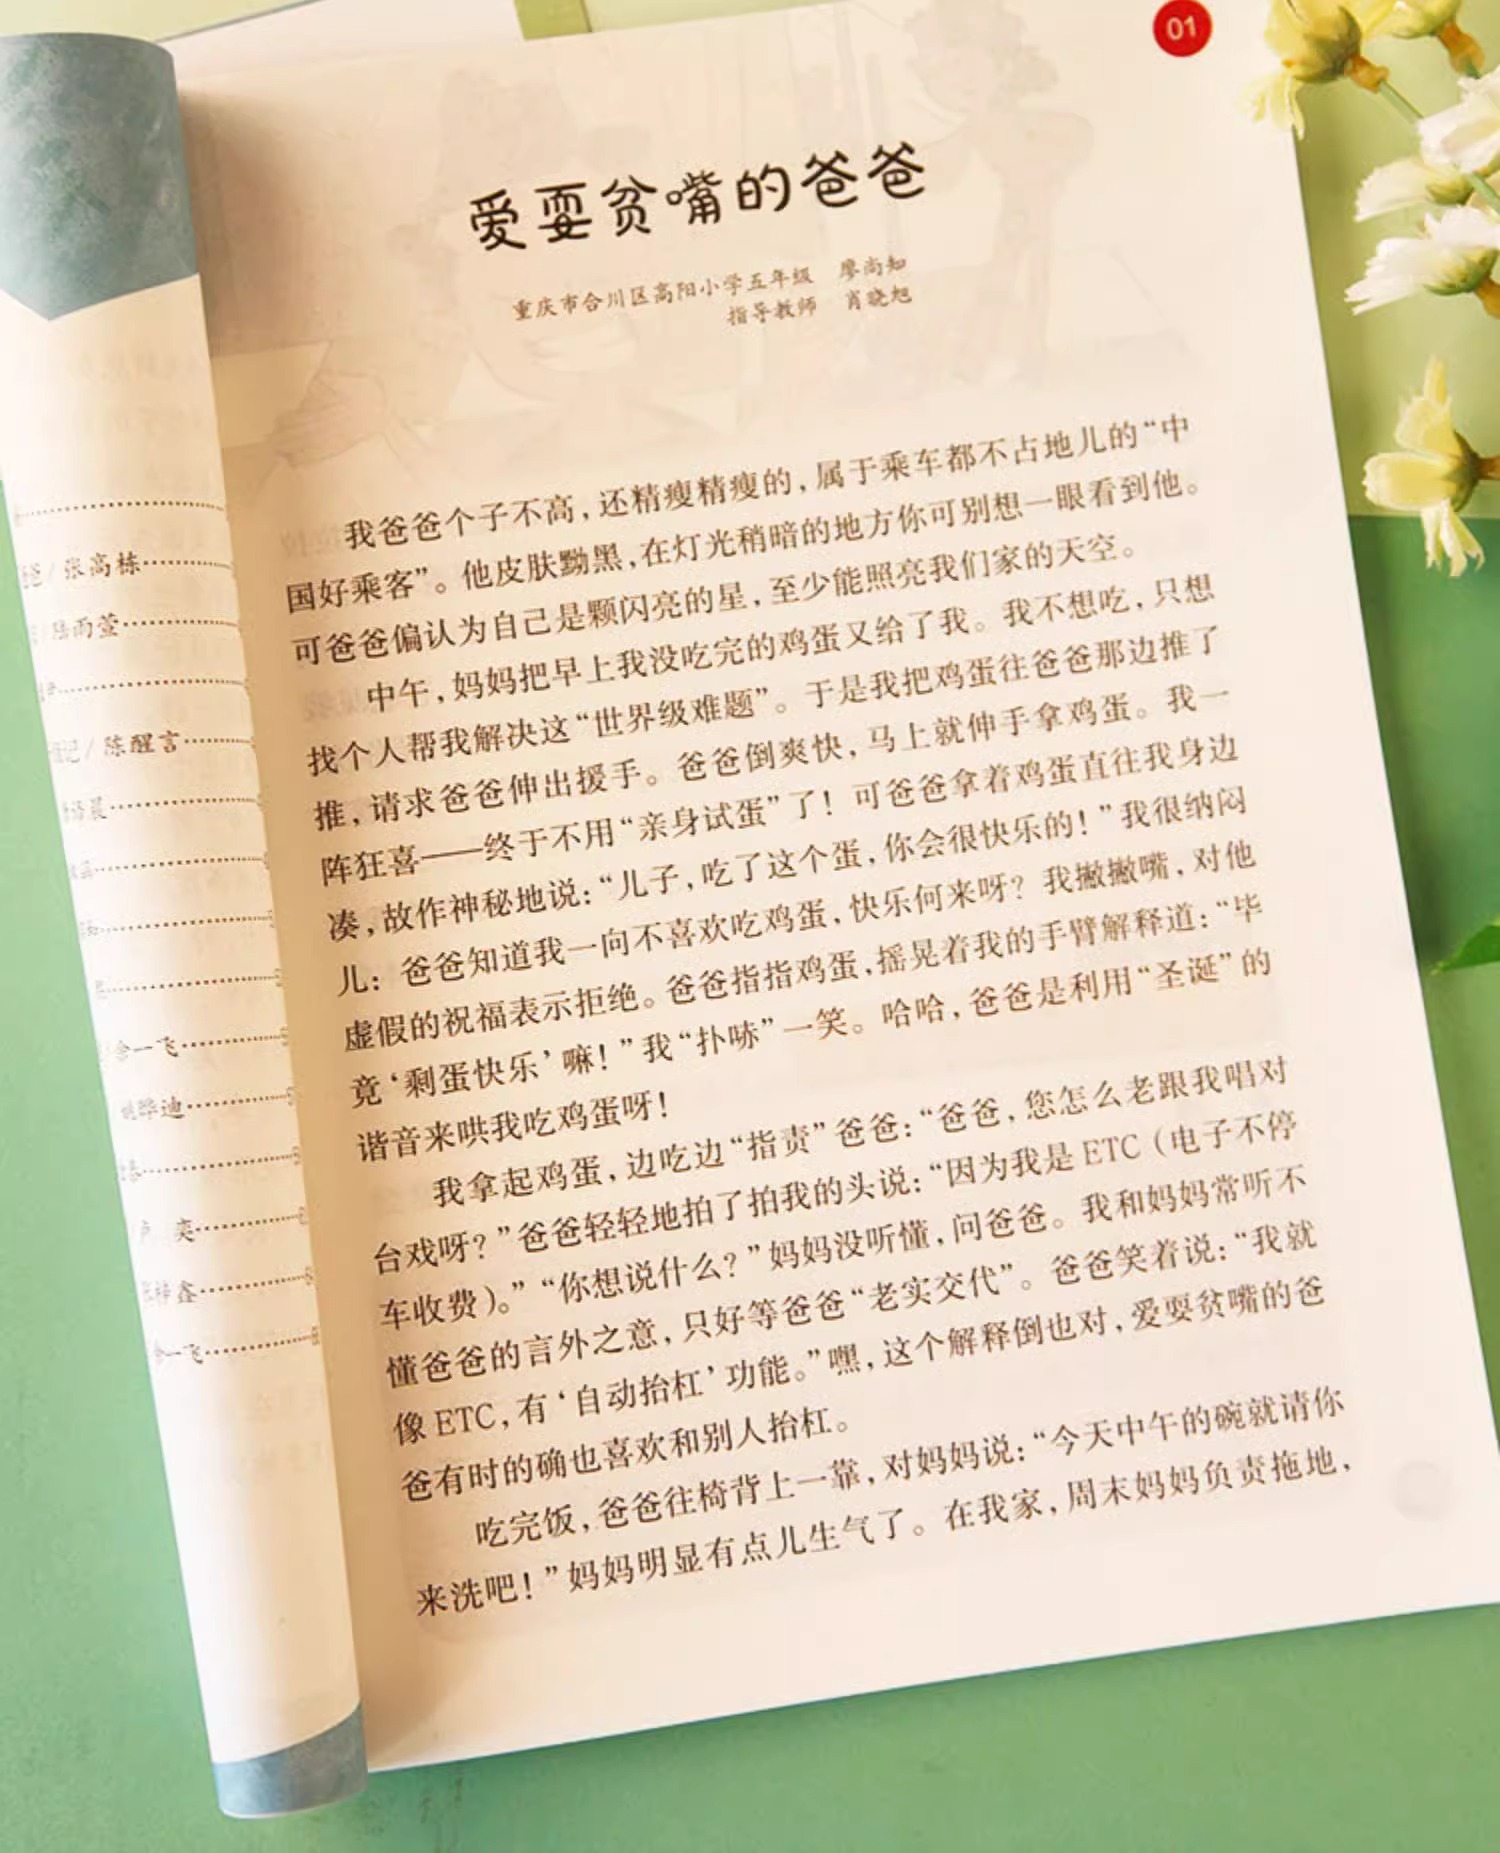 01
爱耍贫嘴的爸爸
重庆市合川区高阳小学五年级 廖尚知
指导教师 肖晓旭
我爸爸个子不高，还精瘦精瘦的，属于乘车都不占地儿的“中
国好乘客”。他皮肤黝黑，在灯光稍暗的地方你可别想一眼看到他。
可爸爸偏认为自己是颗闪亮的星，至少能照亮我们家的天空。
中午，妈妈把早上我没吃完的鸡蛋又给了我。我不想吃，只想
找个人帮我解决这“世界级难题”。于是我把鸡蛋往爸爸那边推了
推，请求爸爸伸出援手。爸爸倒爽快，马上就伸手拿鸡蛋。我一
阵狂喜——终于不用“亲身试蛋”了！可爸爸拿着鸡蛋直往我身边
凑，故作神秘地说：“儿子，吃了这个蛋，你会很快乐的！”我很纳闷
儿：爸爸知道我一向不喜欢吃鸡蛋，快乐何来呀？我撇撇嘴，对他
虚假的祝福表示拒绝。爸爸指指鸡蛋，摇晃着我的手臂解释道：“毕
竟‘剩蛋快乐’嘛！”我“扑哧”一笑。哈哈，爸爸是利用“圣诞”的
谐音来哄我吃鸡蛋呀！
我拿起鸡蛋，边吃边“指责”爸爸：“爸爸，您怎么老跟我唱对
台戏呀？”爸爸轻轻地拍了拍我的头说：“因为我是ETC（电子不停
车收费）。”“你想说什么？”妈妈没听懂，问爸爸。我和妈妈常听不
懂爸爸的言外之意，只好等爸爸“老实交代”。爸爸笑着说：“我就
像ETC，有‘自动抬杠’功能。”嘿，这个解释倒也对，爱耍贫嘴的爸
爸有时的确也喜欢和别人抬杠。
吃完饭，爸爸往椅背上一靠，对妈妈说：“今天中午的碗就请你
来洗吧！”妈妈明显有点儿生气了。在我家，周末妈妈负责拖地，
爸/张高栋
陆雨萱
记/陈醒言
晨
一飞
晔迪
奕
鑫
一飞